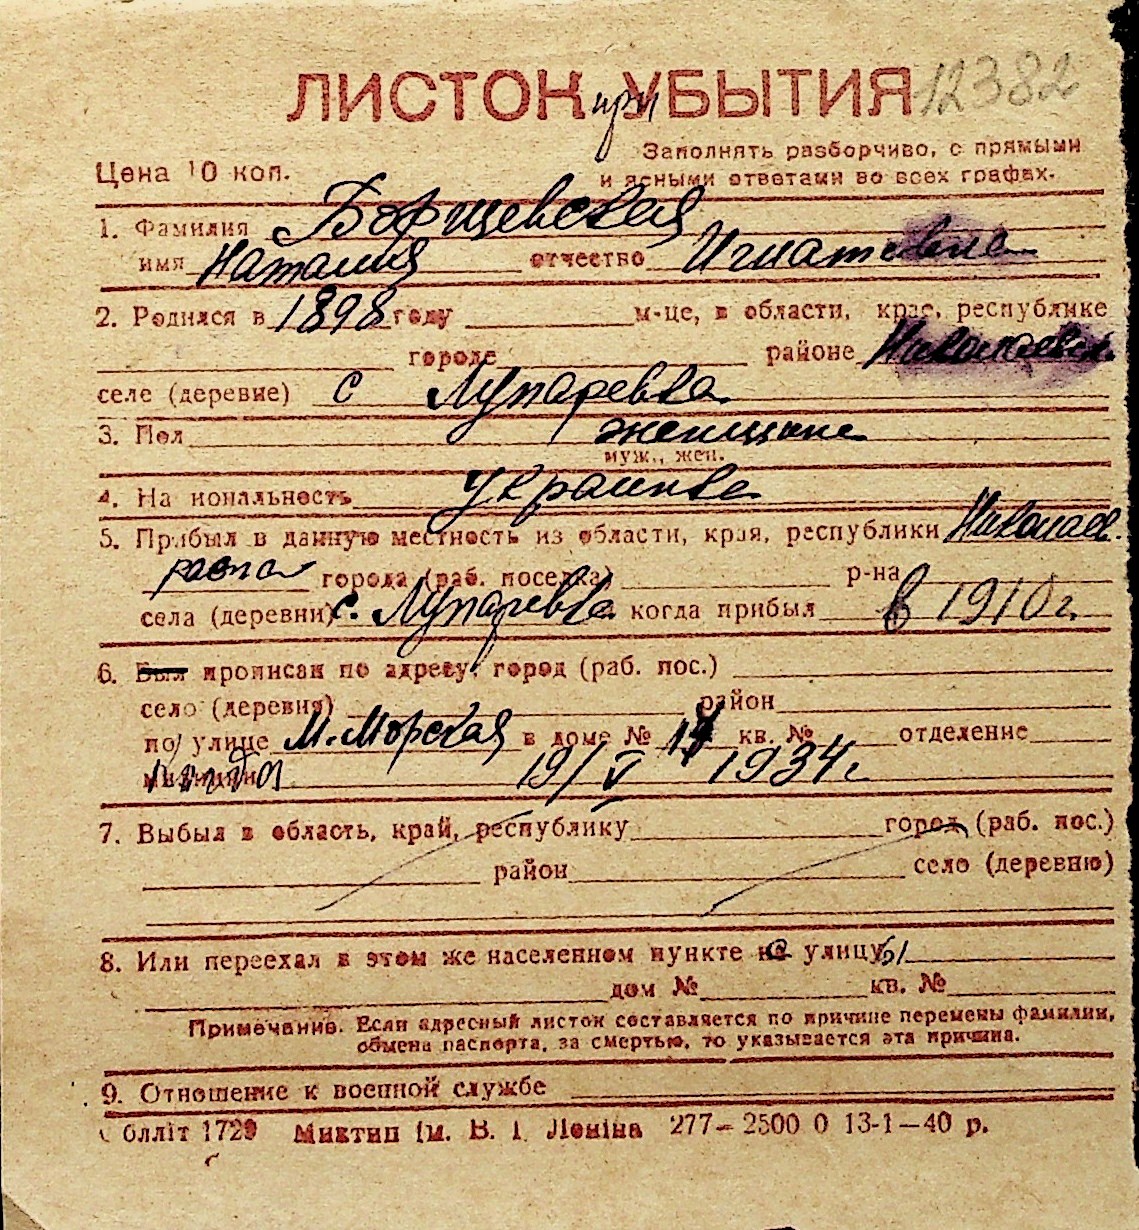 ЛИСТОК при УБЫТИЯ 12382
Заполнять разборчиво, с прямыми
Цена 10 коп. и ясными ответами во всех графах.
1. Фамилия Борщевская
имя Наталия отчество Игнатевна
2. Родился в 1898 году м-це, в области, крае, республике
городе районе Николаевск.
селе (деревне) с Лупаревка
3. Пол женщине
муж., жен.
4. На иональность Украинка
5. Прибыл в данную местность из области, края, республики Николаев.
города (раб. поселка) р-на
села (деревни) с. Лупаревка когда прибыл в 1910 г.
6. Был прописан по адресу: город (раб. пос.)
село (деревня) район
по улице М. Морская в доме № кв. № отделение
милиции 19/V 1934 г.
7. Выбыл в область, край, республику город (раб. пос.)
район село (деревню)
8. Или переехал в этом же населенном пункте с улицы
дом № кв. №
Примечание. Если адресный листок составляется по причине перемены фамилии,
обмена паспорта, за смертью, то указывается эта причина.
9. Отношение к военной службе
блліт 1729 Миктип ім. В. І. Леніна 277–2500 0 13-1–40 р.